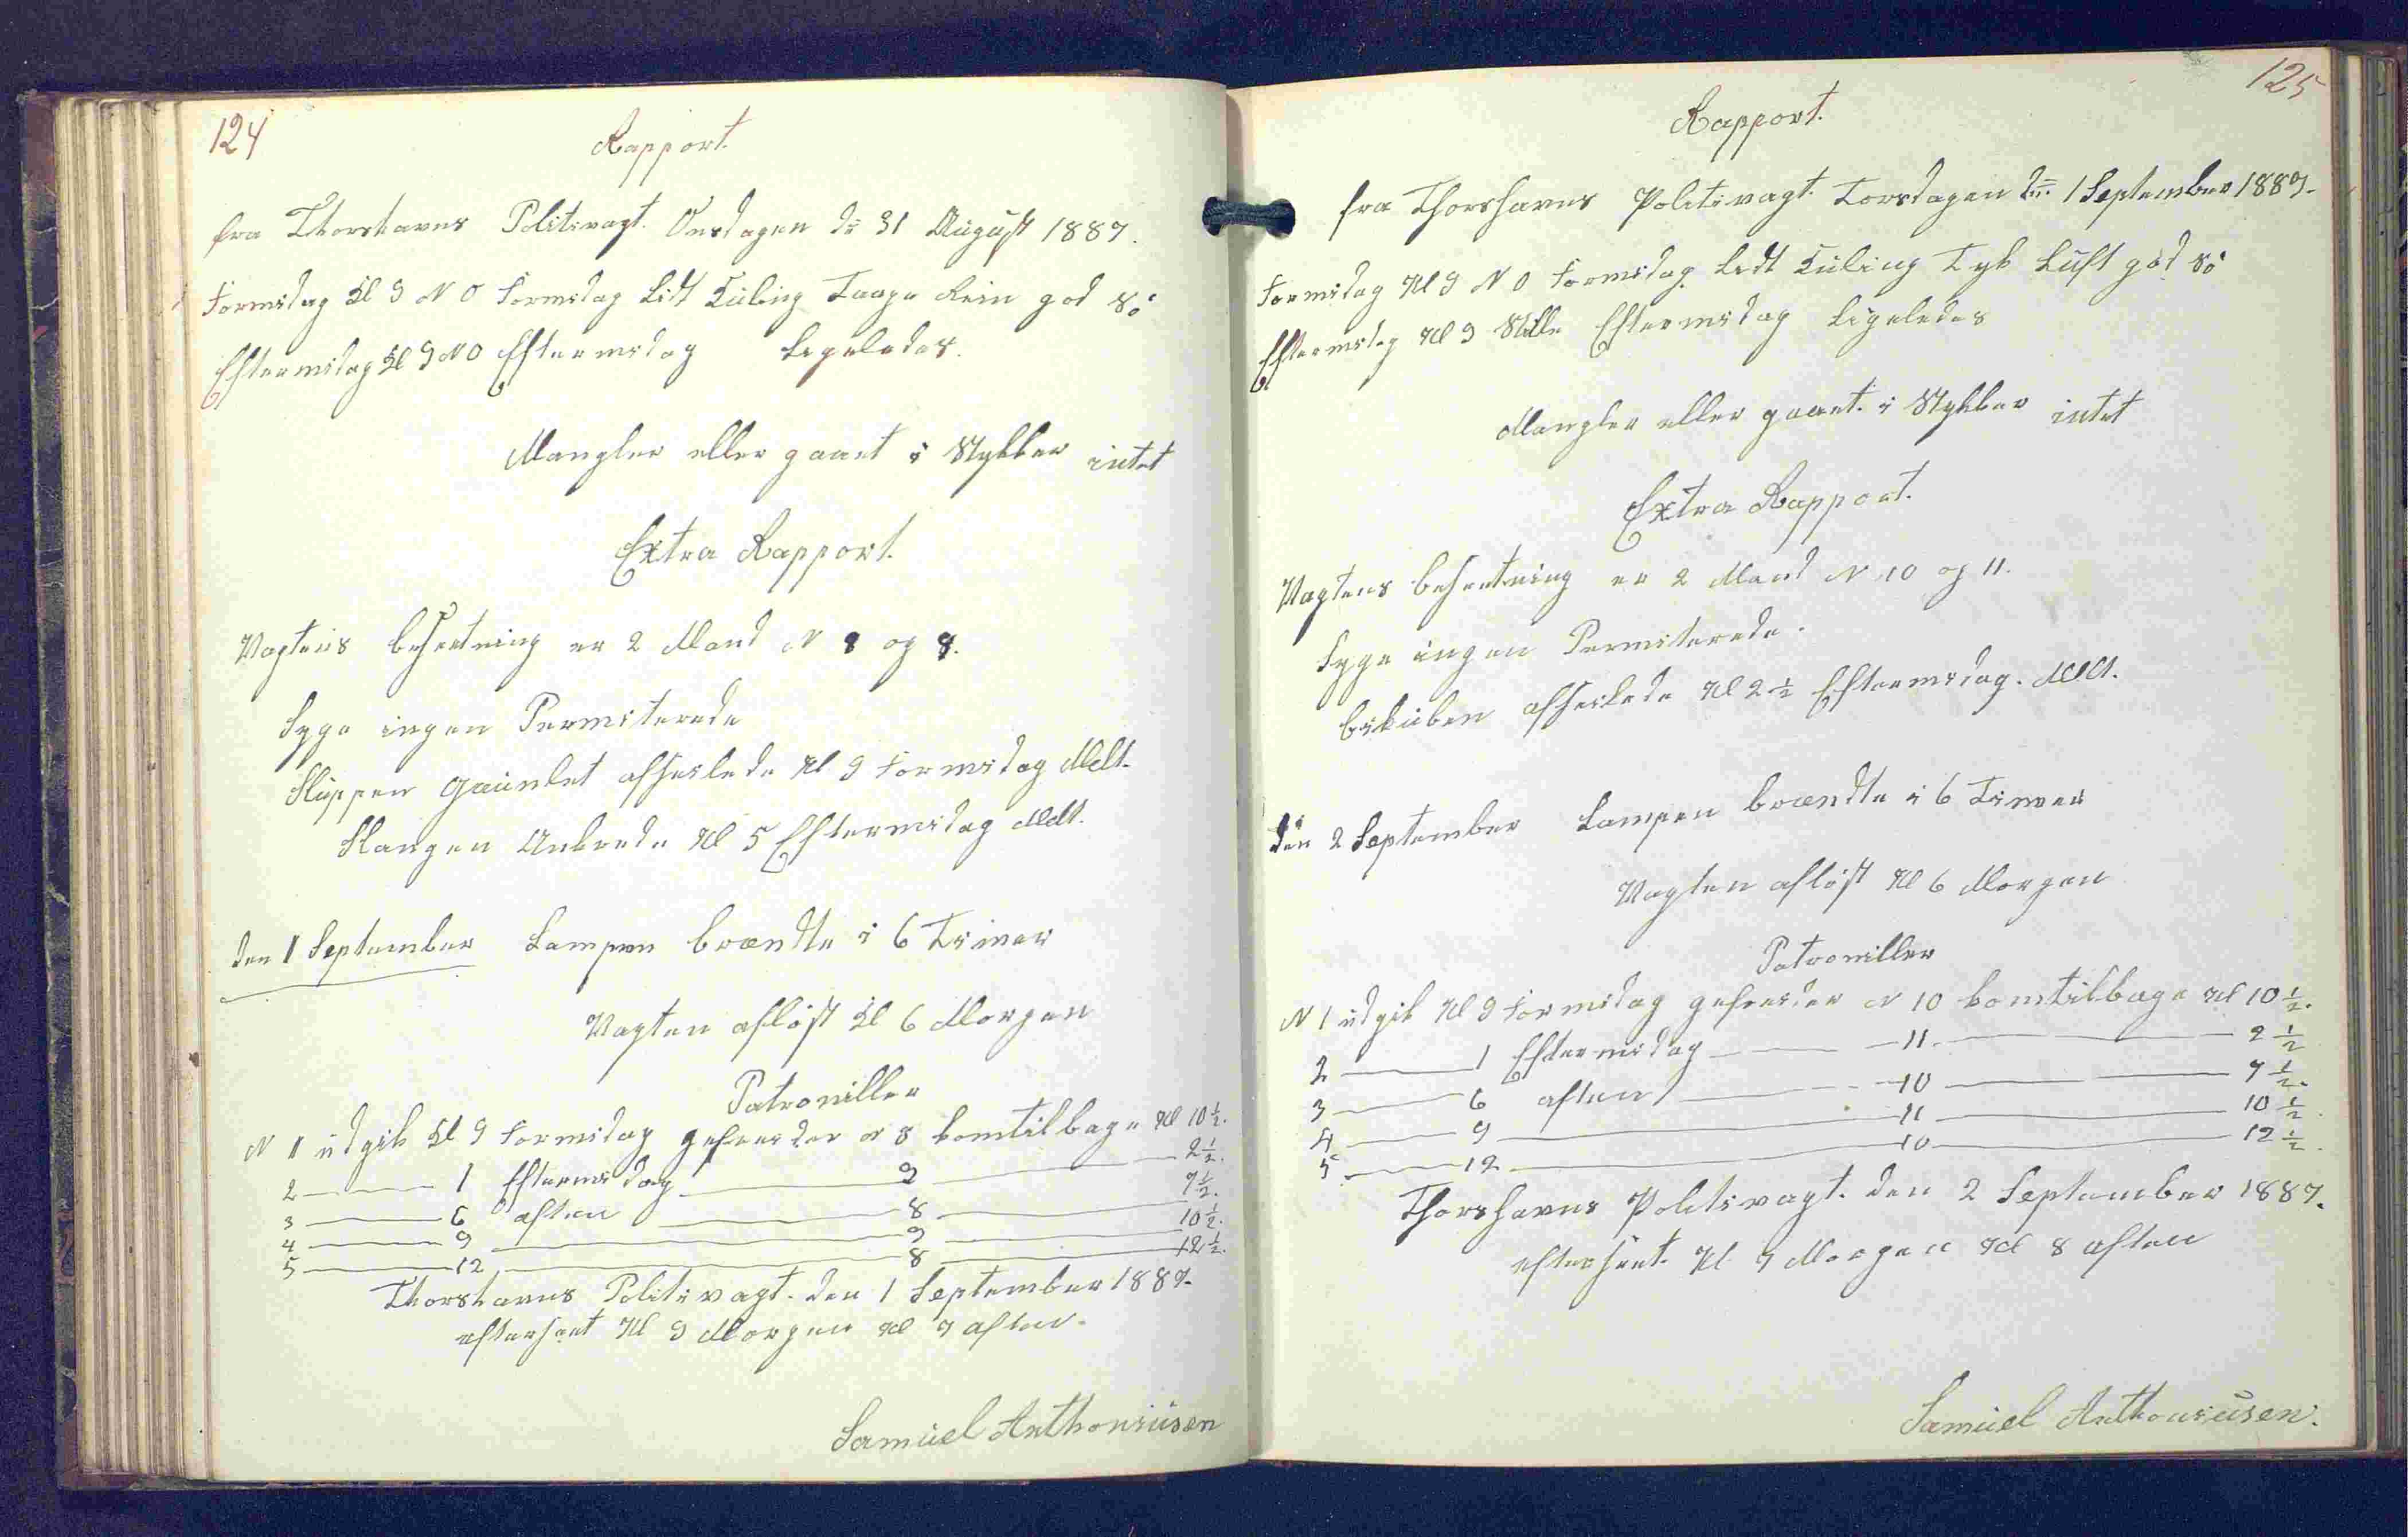 124
Rapport.
fra Thorshavns Politivagt. Onsdagen d: 31 August 1887.
Formidag Kl 9 N O Formidag Lidt Kuling Taage Rein god Sö
Eftermidag Kl 9 N O Eftermidag Ligeledes.
Mangler eller gaaet i Stykker intet
Extra Rapport.
Vagtens besætning er 2 Mand N 8 og 9.
Syge ingen Permiterede
Sluppen afseilede Kl 9 Formidag Mdt.
Slangen Ankrede Kl 5 Eftermidag Mdt.
den 1 September Lampen brændte i 6 Timer
Vagten afløst Kl 6 Morgen
Patrouiller
N 1 udgik Kl 9 Formidag gefreider N 8 komtilbage Kl 10 1/2.
2 — 1 Eftermidag — 9 — 2 1/2.
3 — 6 aften — 8 — 7 1/2.
4 — 9 — 9 — 10 1/2.
5 — 12 — 8 — 12 1/2.
Thorshavns Politivagt. den 1 September 1887.
efterseet Kl 9 Morgen Kl 7 aften.
Samuel Anthoniusen
125
Rapport.
fra Thorshavns Politivagt. Torsdagen den 1 September 1887.
Formidag Kl 9 N O Formidag Lidt Kuling Tyk Luft god Sö
Eftermidag Kl 9 Stille Eftermidag Ligeledes
Mangler eller gaaet i Stykker intet
Extra Rapport.
Vagtens besætning er 2 Mand N 10 og 11.
Syge ingen Permiterede.
afseilede Kl 2 1/2 Eftermidag. Mdt.
den 2 September Lampen brændte i 6 Timer
Vagten afløst Kl 6 Morgen
Patrouiller
N 1 udgik Kl 9 Formidag gefreider N 10 komtilbage Kl 10 1/2.
2 — 1 Eftermidag — 11 — 2 1/2
3 — 6 aften — 10 — 7 1/2.
4 — 9 — 11 — 10 1/2.
5 — 12 — 10 — 12 1/2.
Thorshavns Politivagt. den 2 September 1887.
efterseet. Kl 7 Morgen Kl 8 aften
Samuel Anthoniusen.